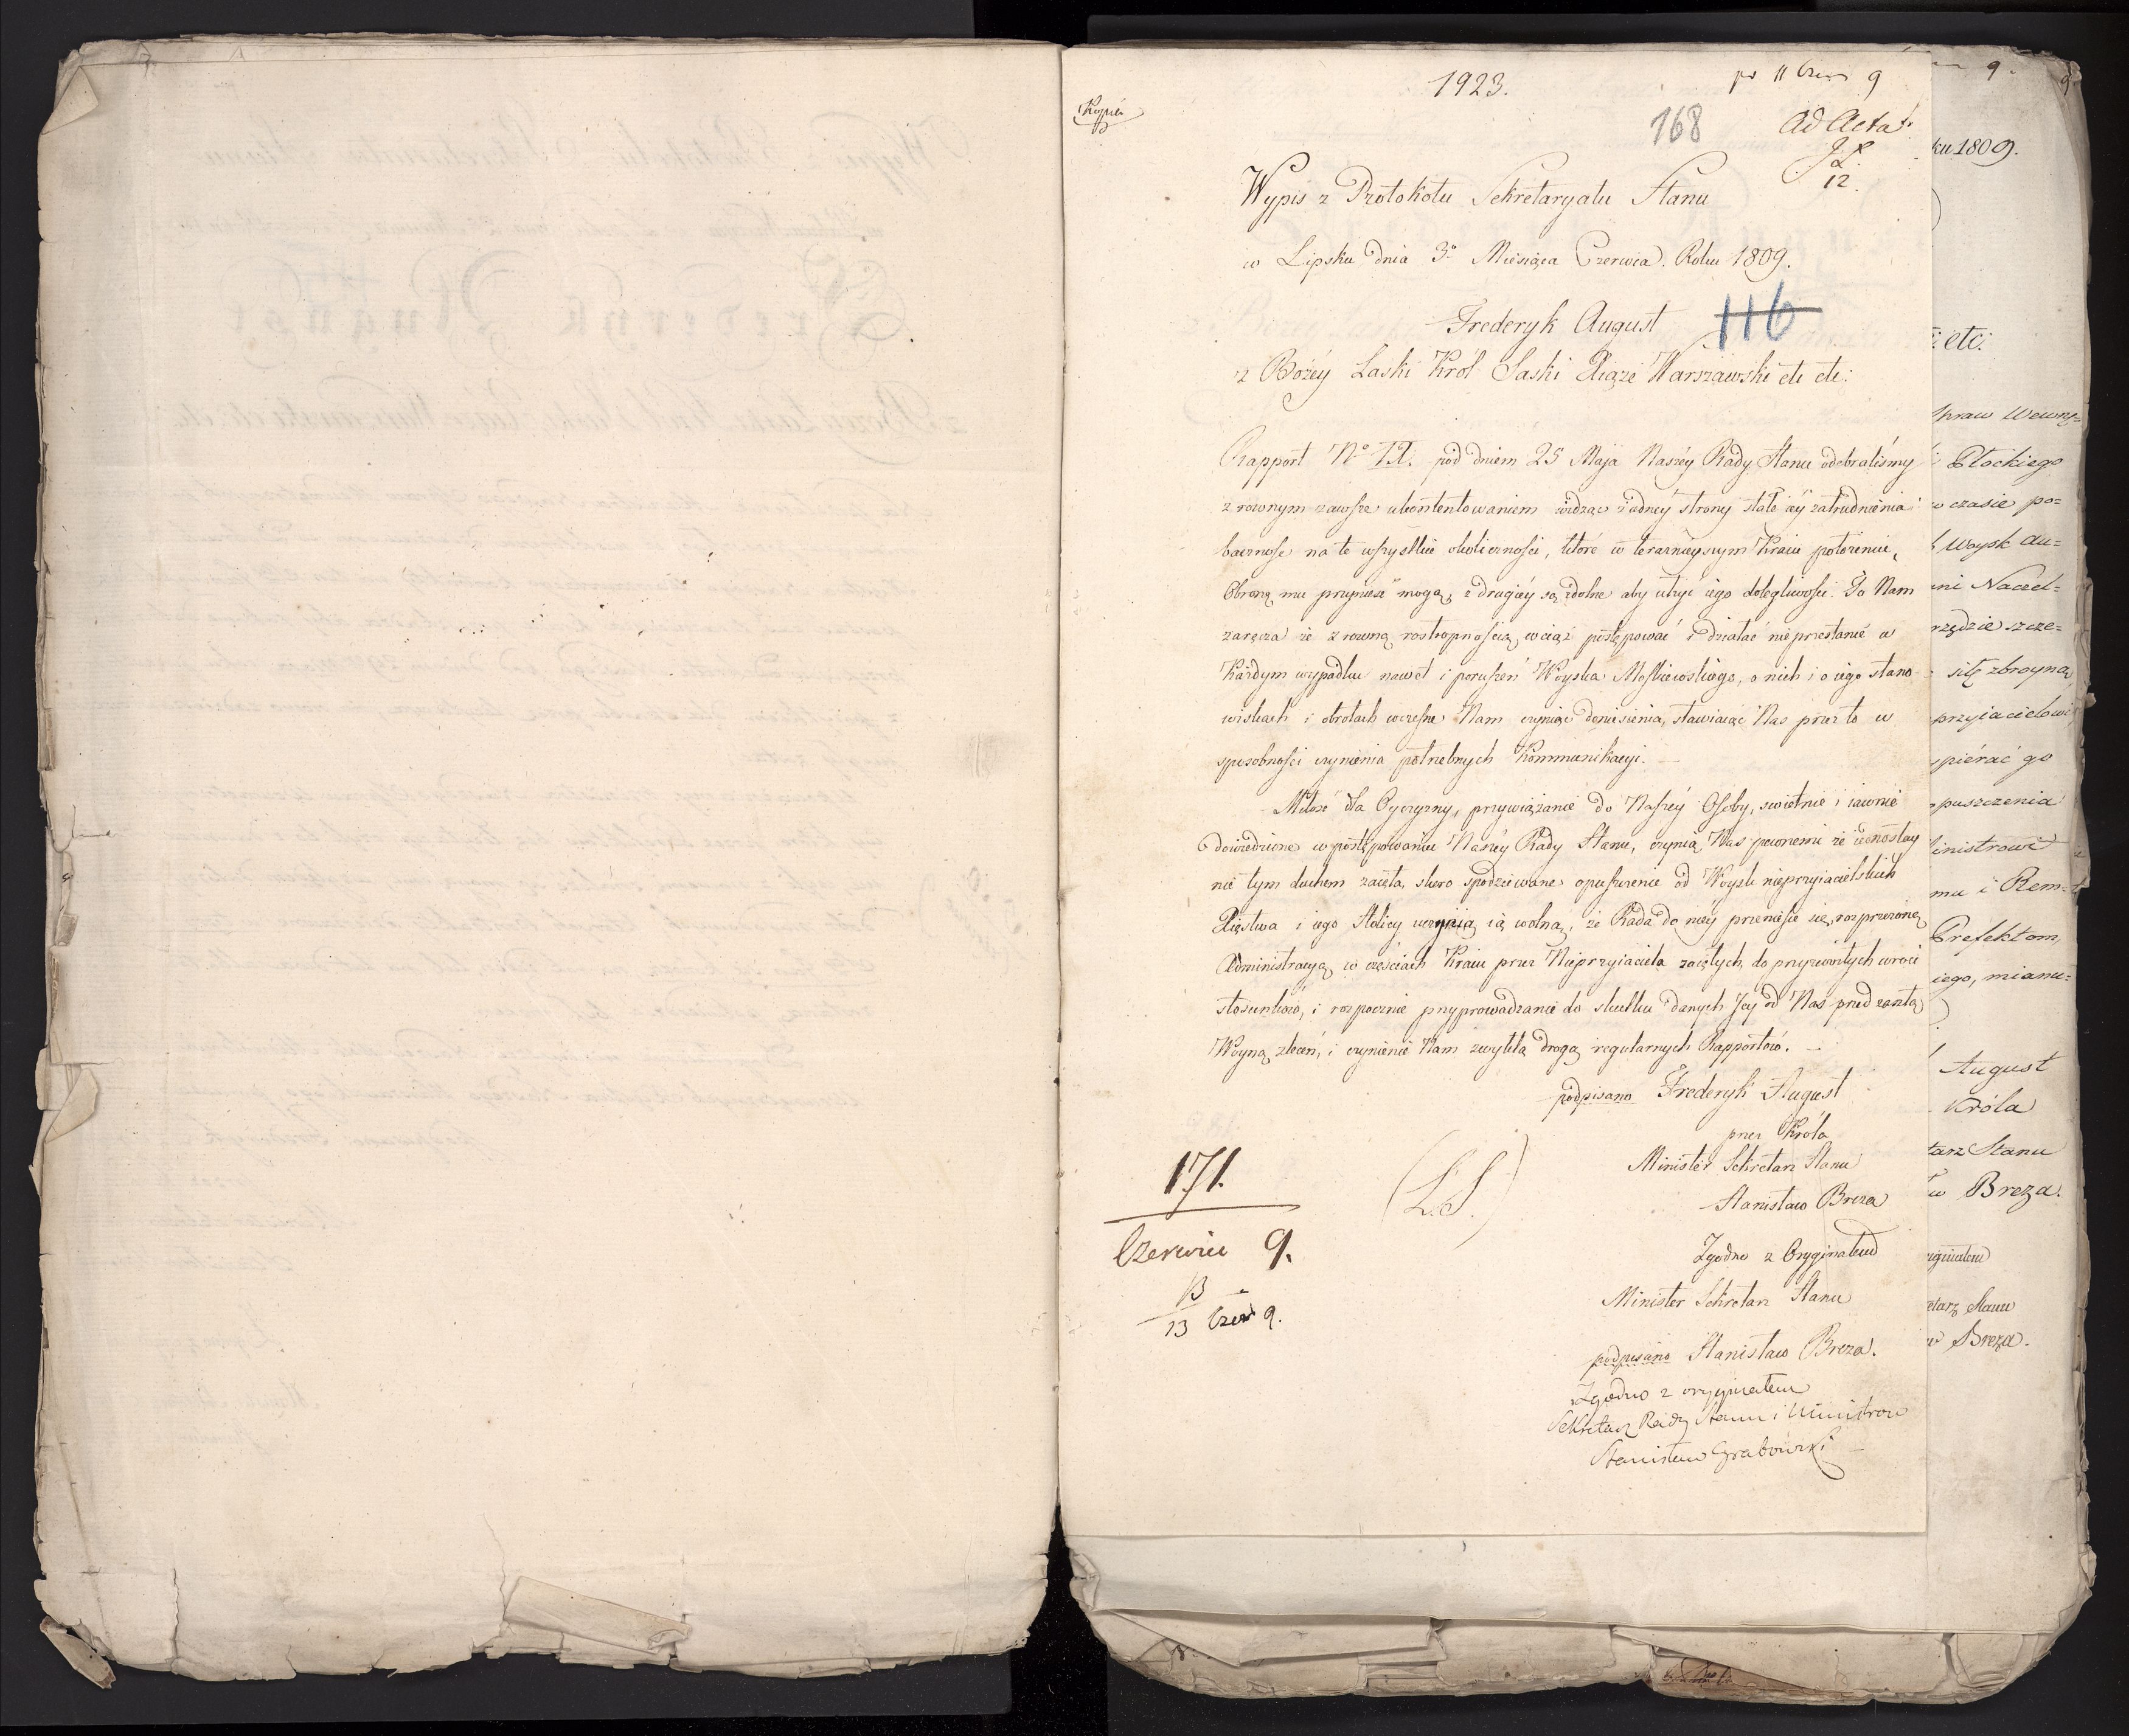 1923.
Kopia
168
Ad Acta
12.
Wypis z Protokołu Sekretaryatu Stanu
w Lipsku dnia 3o Miesiąca Czerwca. Roku 1809.
Frederyk August
116
z Bożey Laski Król Saski Xiąże Warszawski etc etc:
Rapport No IX. pod dniem 25 Maja Naszey Rady Stanu odebraliśmy
z rownym zawsze ukontentowaniem widząc z iedney strony stałe iey zatrudnienia i
baczność na te wszystkie okoliczności, które w teraznieyszym Kraiu położeniu,
Obronę mu przynieść mogą, z drugiey są zdolne aby ulżyć iego dolegliwości. To Nam
zaręcza że z rowną rostropnością wciąż postępować i działać nieprzestanie a w
Każdym wypadku nawet i poruszeń Woyska Moskiewskiego, o nich i o iego stano-
wiskach i obrotach wczesne Nam czyniąc doniesienia, stawiaiąc Nas przez to w
sposobności czynienia potrzebnych Kommunikacyi. —
Miłość dla Oyczyzny, przywiązanie do Naszey Osoby, swietnie i iawnie
dowiedzione w postępowaniu Naszey Rady Stanu, czynią Nas pewnemi że iednostay
nie tym duchem zaięta, skoro spodziewane opuszczenie od Woysk nieprzyiacielskich
Xięstwa i iego Stolicy uczynią ią wolną, że Rada do niey przeniesie się, rozprzężoną
Administracyą w częściach Kraiu przez Nieprzyiaciela zaiętych, do przyzwoitych wroci
stosunkow, i rozpocznie przyprowadzanie do skutku danych Jey od Nas przed zaszłą
Woyną zleceń, i czynienie Nam zwykłą drogą regularnych Rapportow. —
podpisano Frederyk August
przez Króla
Minister Sekretarz Stanu
Stanisław Breza
(L.S.)
171.
Czerwiec 9.
13 Czer 9.
Zgodno z Oryginałem
Minister Sekretarz Stanu
podpisano Stanisław Breza.
Zgodno z oryginałem
Sekretarz Rady Stanu i Ministrow
Stanisław Grabowski
9.
ku 1809.
etc:
Spraw Wewnę=
Płockiego
w czasie po=
Woysk Au=
ni Naczel=
rzędzie szcze=
siłę zbroyną
przyiacielowi
pierać go
puszczenia
inistrowi
mu i Rem=
Prefektom,
iego, mianu=
August
Króla
tarz Stanu
w Breza.
yginałem
etarz Stanu
w Breza.